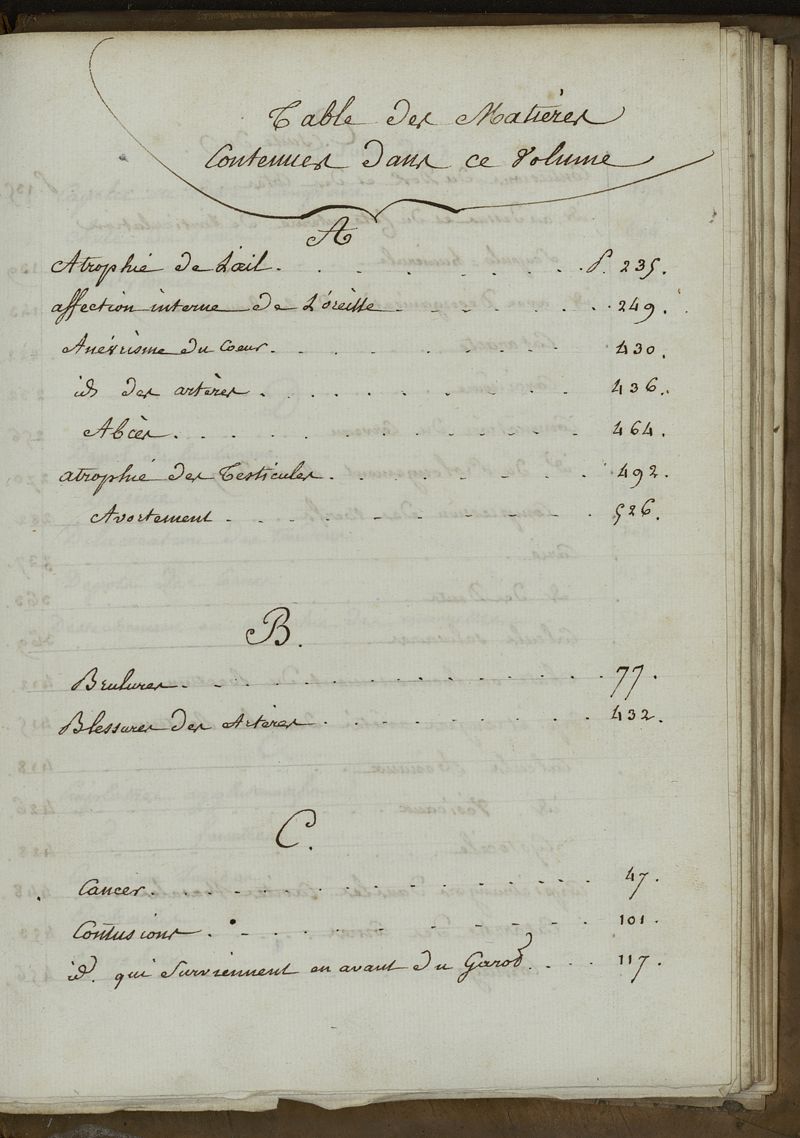 Table des Matieres
Contenues dans ce Volume
A
Atrophie de L'œil. . . . . . . . . P. 235.
affection interne de L'oreille . . . . . . 249.
Anévrisme du Coeur. . . . . . . . . 430.
id des artères . . . . . . . . . 436.
Abcès. . . . . . . . . . . 464.
atrophie des Testicules. . . . . . . . 492.
Avortement . . . . . . . . . . 526.
B.
Brulures. . . . . . . . . . . 77.
Blessures des Artères . . . . . . . . 432.
C.
Cancer. . . . . . . . . . . 47.
Contusions . . . . . . . . . . 101.
id. qui surviennent en avant du Garot. . . . 117.